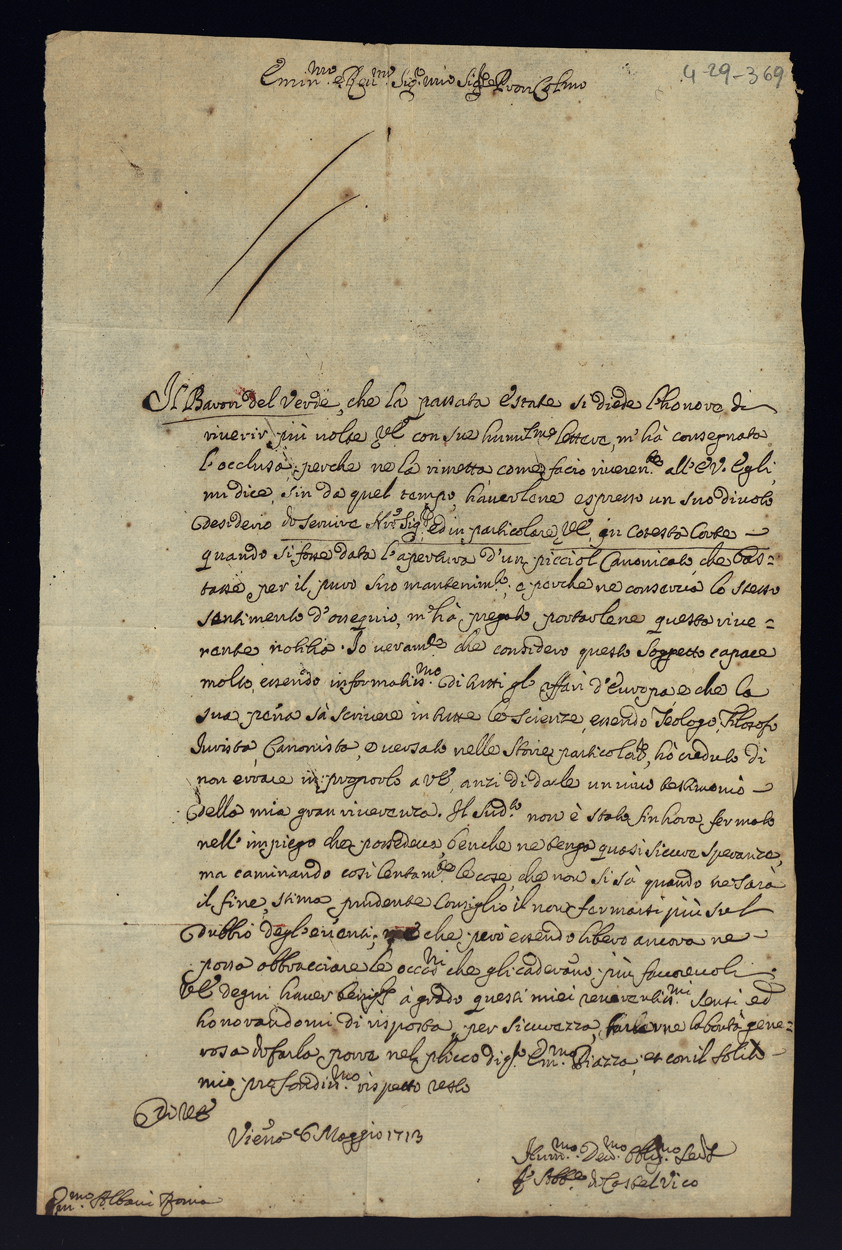 4-29-369
Emin.mo e Rev.mo Sig.r mio Sig.r Pron Col.mo
Il Baron del Verde, che la passata Estate si diede l'honore di
riverir più volte VE con sue humil.me lettere, m'hà consegnata
l'occlusa, perche ne la rimetta, come facio riveren.te all'EV. Egli
mi dice, sin da quel tempo, haverlene espresso un suo divoto
desiderio di servire N.ro Sig.re ed in particolare VE, in cotesta Corte
quando si fosse data l'apertura d'un picciol Canonicato, che bas=
tasse per il puro suo mantenim.to, e perche ne conserva lo stesso
sentimento d'ossequio, m'hà pregato portarlene questa rive=
rente notitia. Io veram.te che considero questo Soggetto capace
molto, essendo informatis.mo di tutti gl'affari d'Europa, e che la
sua peña sà scrivere in tutte le scienze, essendo Teologo, Filosofo
Iurista, Canonista, e versato nelle Storie particolari, hò creduto di
non errare in proporlo a VE, anzi di darle un vivo testimonio
della mia gran riverenza. Il Sud.to non è stato sinhora fermato
nell'impiego che possedeva, benche ne tenga quasi sicura speranza,
ma caminando così lentam.te le cose, che non si sà quando ne sarà
il fine, stima prudente Consiglio il non fermarsi più sul
dubbio degl'eventi, che però essendo libero ancora ne
possa abbracciare le occ.ni che gli caderano più favorevoli.
VE degni haver à grado questi miei reverentis.mi sensi ed
honorandomi di risposta, per sicurezza, la bontà gene=
rosa di farla porre nel plicco di q.to Em.mo Piazza, et con il solito
mio profondis.mo rispetto resto
Di VE
Vieña 6 Maggio 1713
Hum.mo Dev.mo Obblig.mo Ser.e
L'Abb.e di Castelvico
Em.mo Albani Roma